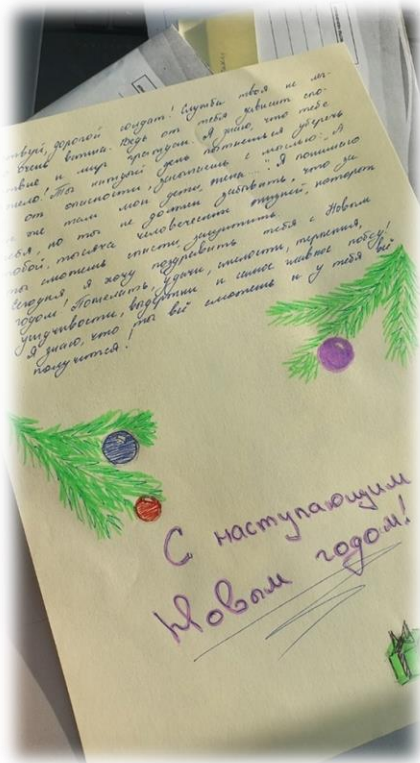 твуй, дорогой солдат! Служба твоя не лег-
очень важна. Ведь от тебя зависит спо-
ствие и мир граждан. Я знаю, что тебе
тяжело! Ты каждый день пытаешься уберечь
от опасности, засыпаешь с мыслью: „А
как же там мои дети, жена...". Я понимаю
тебя, но ты не должен забывать, что за
тобой, тысяча человеческих душ, которых
ты сможешь спасти, защитить.
Сегодня, я хочу поздравить тебя с Новым
годом! Пожелать, удачи, смелости, терпения,
удачливости, выдержки и самое главное победу!
Я знаю, что ты всё сможешь и у тебя всё
получится!
С наступающим
Новым годом!